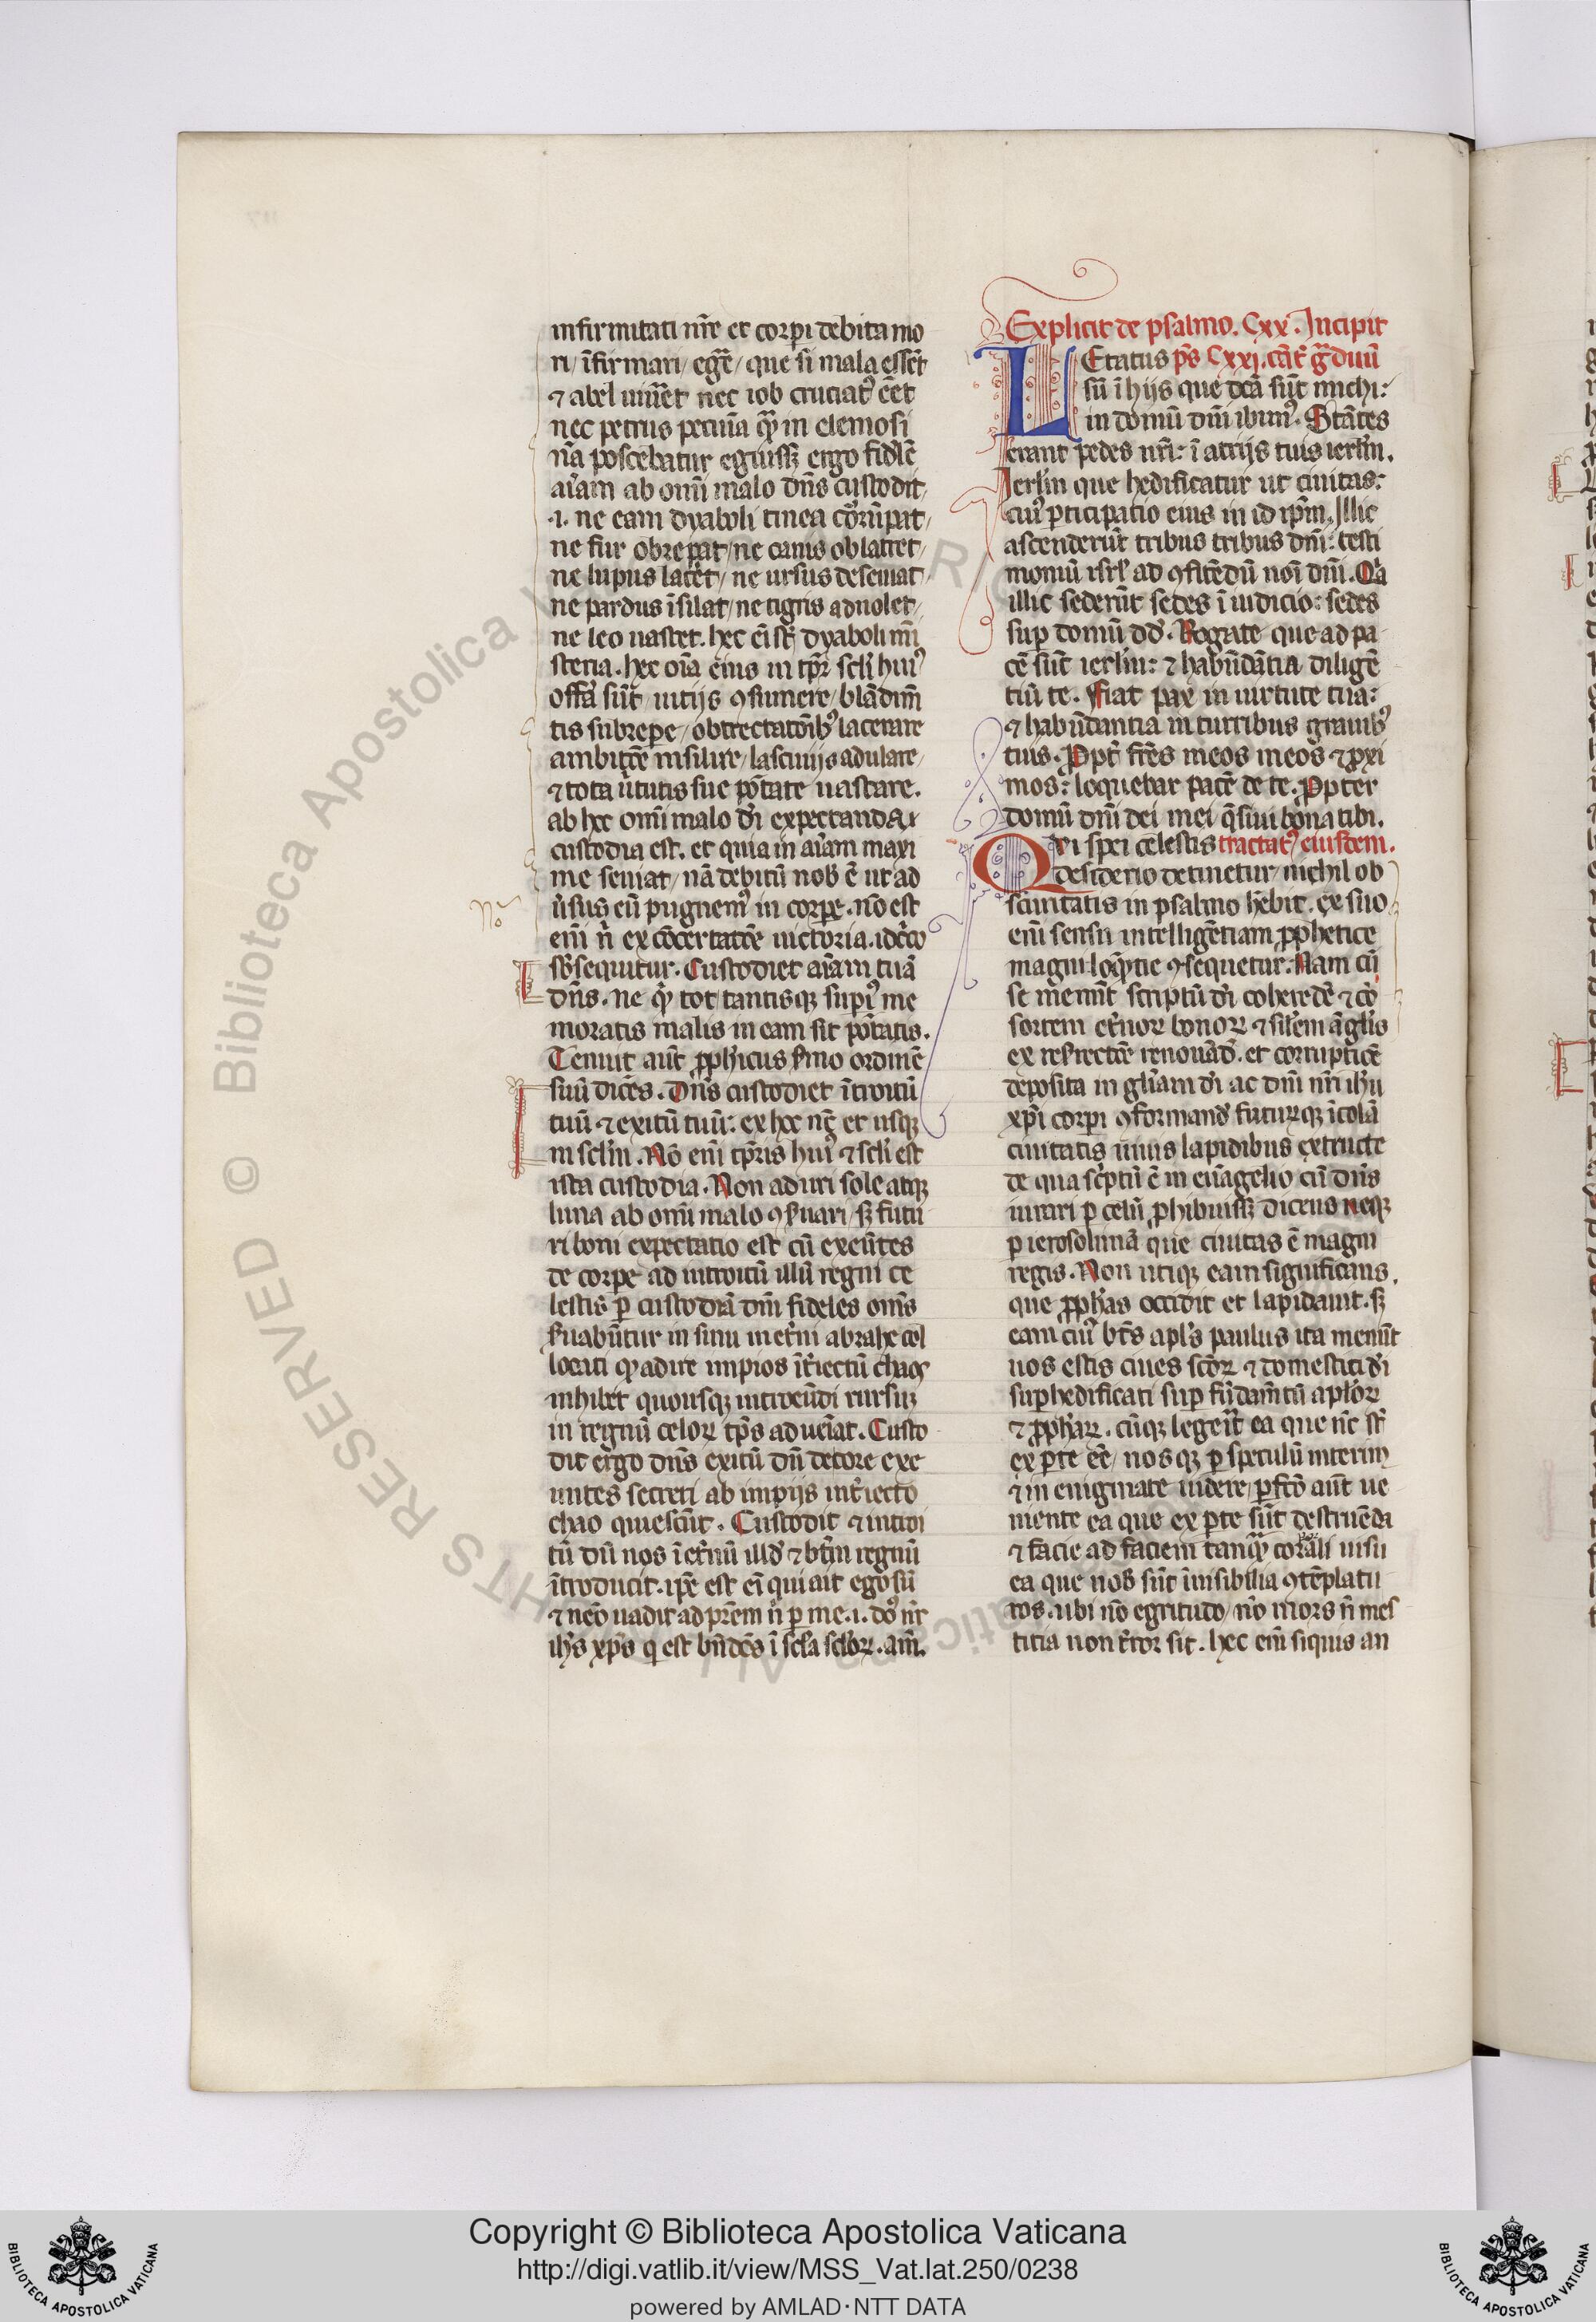 infirmitati nr̄e et corpi debita mo
ri/ īfirmari/ egr̄e/ que si mala essēt
⁊ abel uiu̅et nec iob cruciat᷒ e̅et
nec petrus pecuīa q̄ in elemosi
nā poscebatur eguissꝫ ergo fidelē
aīam ab omī malo dn̄s custodit
.i. ne eam dyaboli tinea cōrūpat/
ne fur obrepat/ ne canis oblatret/
ne lupus lac̄et/ ne ursus deseuiat/
ne pardus īsilat/ ne tigris aduolet/
ne leo uastet. hec eī sꝫ dyaboli mī
steria. hec oīa eius in tp̄r scl̄i hui᷒
offā sūt/ uitijs ꝯsumere/ blādim̄
tis subrepe/ obtrectatōib᷒ lacerare
ambitōe insilire/ lasciuijs adulare/
⁊ tota u̅tutis sue ptāte uastare.
ab hec omī malo dī expectanda
custodia est. et quia in aīam maxi
me seuiat/ nā debitū nob̄ ē ut ad
u̅sus eū pugnem᷒ in corpe. nō est
enī n̄ ex cōcertatōe uictoria. idc̄o
sb̄sequitur. Custodiet aīam tuā
dn̄s. ne qͥ tot tantisqꝫ supi᷒ me
moratis malis in eam sit ptātis.
Tenuit aūt ꝓph̄icus sm̄o ordinē
suū dicēs. Dn̄s custodiet ītroitū
tuū ⁊ exitū tuū: ex hoc nc̄ et usqꝫ
in sclm̄. Nō enī tp̄ris hui᷒ ⁊ scl̄i est
ista custodia. Non aduri sole atqꝫ
luna ab omī malo ꝯs̄uari/ sꝫ futu
ri boni expectatio est cū exeūtes
de corpe ad introitū illū regni ce
lestis ꝑ custodiā dnī fideles om̄s
s̄uabūtur in sinu inet̄ni abrahe col
locati qͦ adire impios īt̄iectū chaos
inhibet quousqꝫ introeūdi rursuꝫ
in regnū celoꝝ tp̄s adueīat. Custo
dit ergo dn̄s exitū dū decore exe
untes secreti ab impijs int̄iecto
chao quiescūt. Custodit ⁊ introi
tū dū nos ī et̄nū illd̄ ⁊ bt̄m regnū
ītroducit. ip̄e est eī qui ait ego sū
⁊ nēo uadit ad prēm n̄ ꝑ me .i. do᷒ nr̄
ih̄s xp̄s q̇ est bn̄dc̄s ī scl̄a scl̄oꝝ. am̄.
Explicit de psalmo. Cxx. Incipit
LEtatus ps̄ Cxxi. cāt̄ gr̄duū
sū ī hijs que dcā sūt michi:
in domū dnī ibim᷒. Stātes
erant pedes nrī: ī atrijs tuis ierlm̄.
Ierlm̄ que hedificatur ut ciuitas:
cui᷒ ꝑticipatio eius in id ip̄m. Illic
ascenderūt tribus tribus dnī: testi
moniū isrl̄ ad ꝯfitēdū noī dnī. Qa
illic sederūt sedes ī iudicio: sedes
suꝑ domū dd̄. Rogate que ad pa
cē sūt ierlm̄: ⁊ habūdātia diligē
tiū te. Fiat pax in uirtute tua:
⁊ habūdantia in turribus grauib᷒
tuis. Ꝓpt̄ fr̄es meos meos ⁊ ꝓxi
mos: loquebar pacē de te. Ꝓpter
domū dnī dei mei q̄siui bona tibi.
Qvi spei celestis tractat᷒ eiusdem.
desiderio detinetur/ nichil ob
scuritatis in psalmo hēbit. ex suo
enī sensu intelligētiam ꝓphetice
magniloqͥtie ꝯsequetur. Nam cū
se mem̄it scriptū dī coheredē ⁊ cō
sortem et̄noꝝ bonoꝝ ⁊ sil̄em āgl̄is
ex res̄rectōe renouād̄. et corruptiōe
deposita in gl̄iam dī ac dnī nrī ih̄u
xp̄i corpi ꝯformand̄ futurqꝫ īcolā
ciuitatis uiuis lapidibus extructe
de qua sc̄ptū ē in euāgelio cū dn̄s
iurari ꝑ celū ꝓhibuissꝫ dicens neqꝫ
ꝑ ierosolimā que ciuitas ē magni
regis. Non utiqꝫ eam significans.
que ꝓph̄as occidit et lapidauit. sꝫ
eam cui᷒ bt̄s apl̄s paulus ita mem̄it
uos estis ciues scōꝝ ⁊ domestici dī
suꝑhedificati suꝑ fūdam̄tū apl̄oꝝ
⁊ ꝓph̄aꝝ. cūqꝫ leger̄it ea que nc̄ st̄
ex ꝑte eē/ nosqꝫ ꝑ speculū interim
⁊ in enigmate uidere/ ꝑfc̄o aūt ue
niente ea que ex ꝑte sūt destruēda
⁊ facie ad faciem tanqͣ corꝑali uisu
ea que nob̄ sūt īuisibilia ꝯtēplatu
ros. ubi nō egritudo/ nō mors n̄ mes
titia non t̄ror sit. hec enī siquis an
Copyright © Biblioteca Apostolica Vaticana
http://digi.vatlib.it/view/MSS_Vat.lat.250/0238
powered by AMLAD·NTT DATA